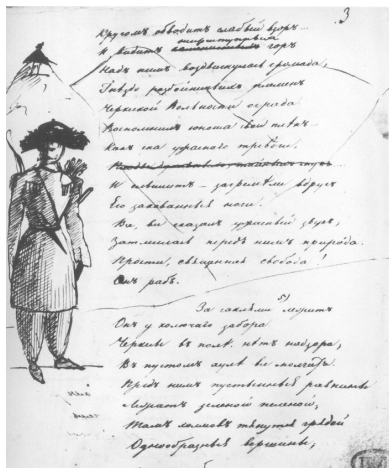 3
Кругомъ обводитъ слабый взоръ...
И видитъ неприступныхъ горъ
Надъ нимъ воздвигнулась громада,
Гнѣздо разбойничьихъ племенъ
Черкеской вольности ограда
Воспомнилъ юноша свой плѣнъ
Какъ сна ужаснаго тревоги.
И слышитъ — загремѣли вдругъ
Его закованныя ноги.
Все, все сказалъ ужасный звукъ;
Затмилась передъ нимъ природа.
Прости, священная свобода!
Онъ рабъ.
За саклями 5) лежитъ
Онъ у колючаго забора
Черкесы въ полѣ, нѣтъ надзора,
Въ пустомъ аулѣ все молчитъ.
Предъ нимъ пустынныя равнины
Лежатъ зеленой пеленой,
Тамъ холмовъ тянутся грядой
Однообразныя вершины,